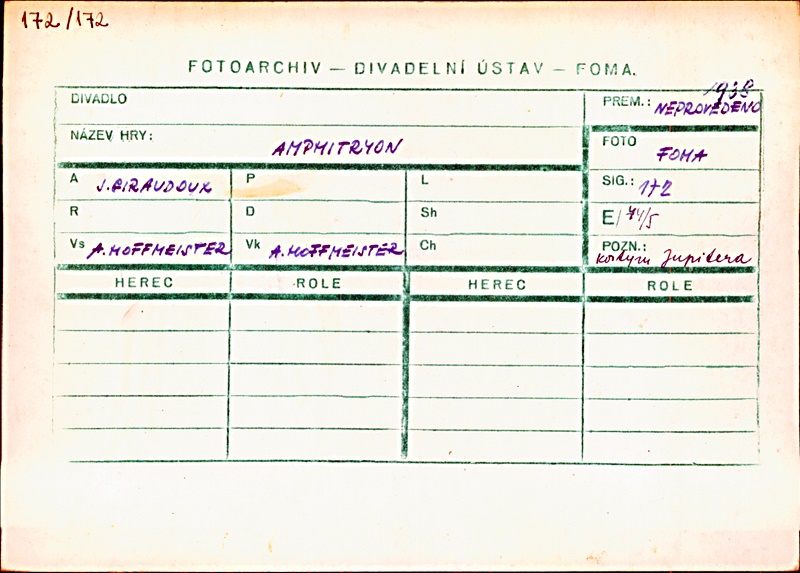 172/172
FOTOARCHIV — DIVADELNÍ ÚSTAV — FOMA.
DIVADLO
PREM.: 1938 NEPROVEDENO
NÁZEV HRY: AMPHITRYON
FOTO FOMA
A J. GIRAUDOUX P L
SIG.: 172
R D Sh
E/44/5
Vs A. HOFFMEISTER Vk A. HOFFMEISTER Ch
POZN.: kostym Jupitera
HEREC ROLE HEREC ROLE